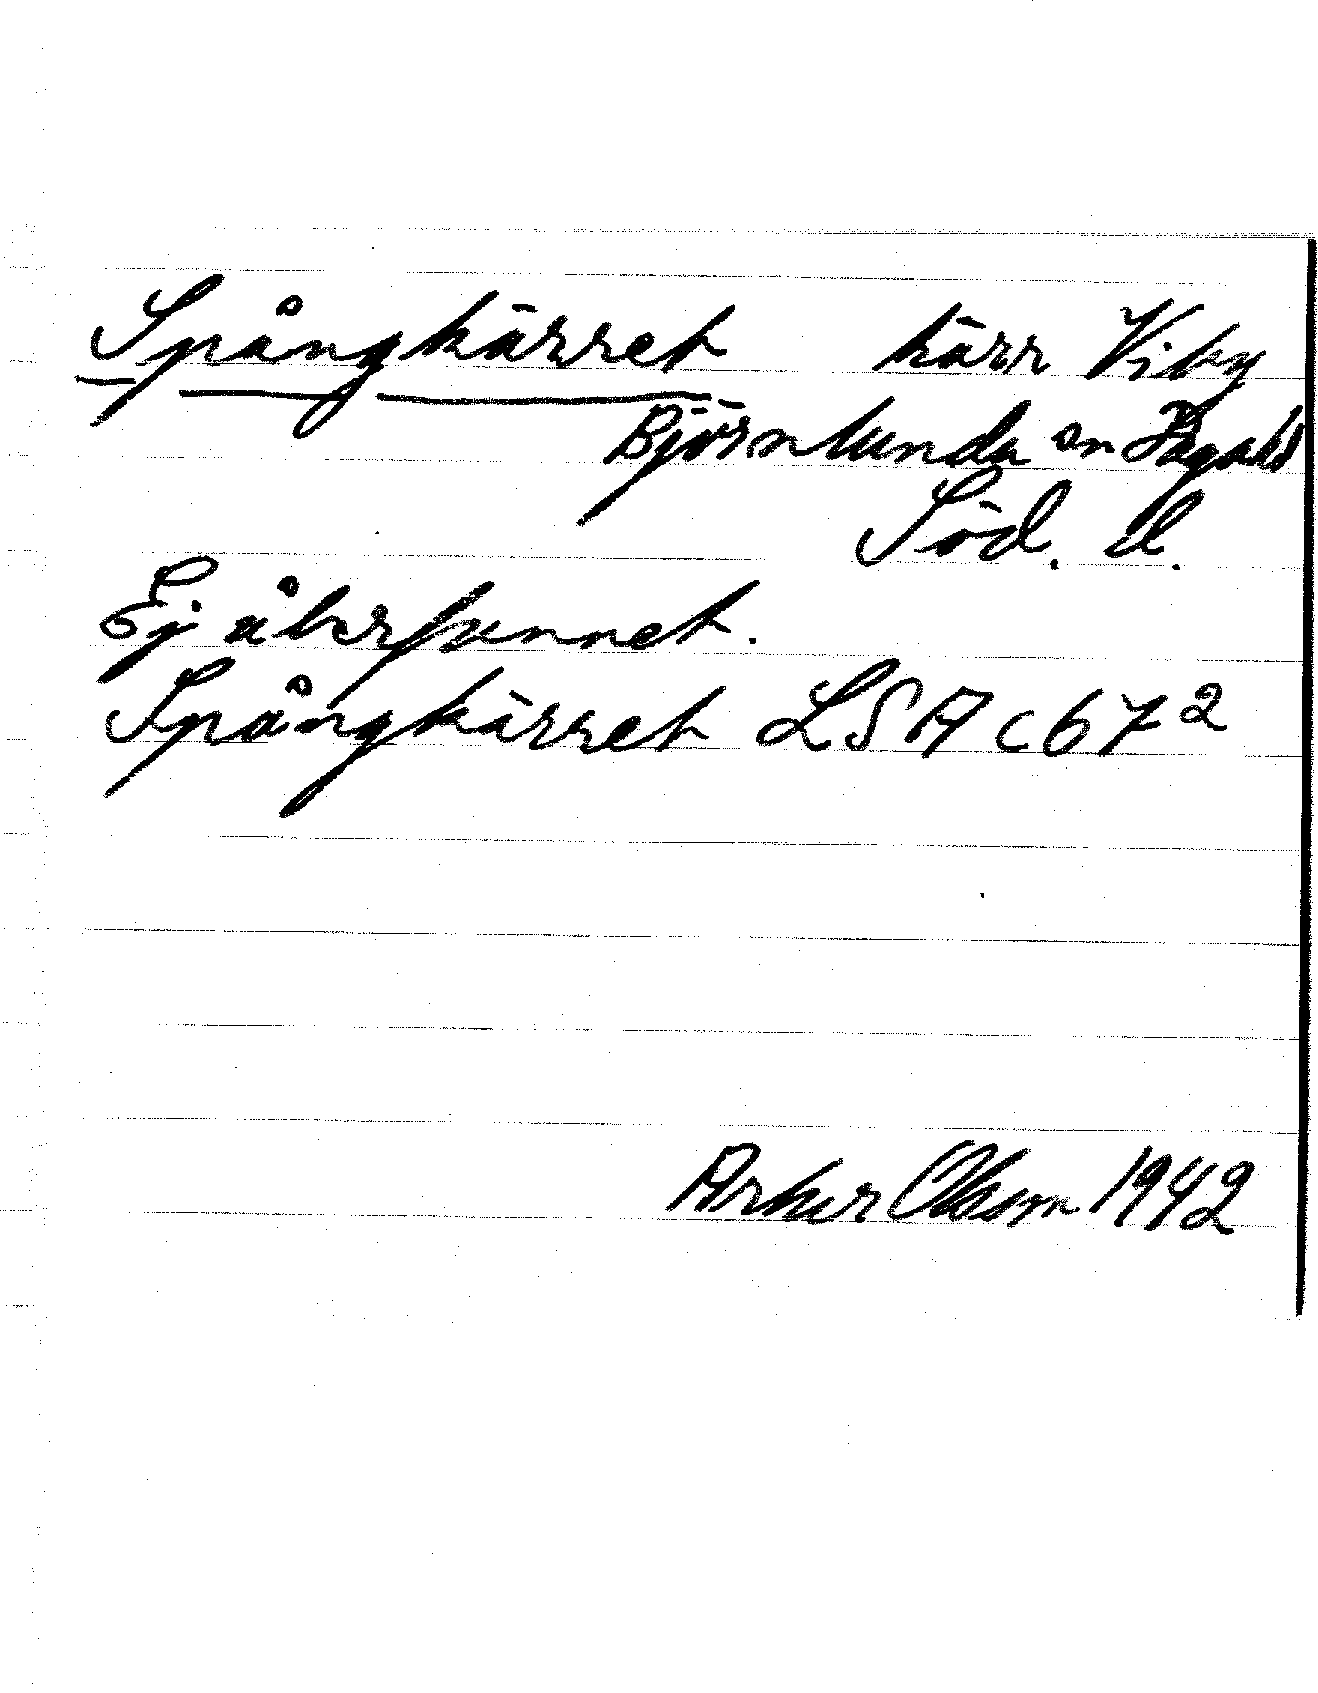 Spångkärret kärr Viby
Björnlunda sn Daga hd
Söd. l.
Ej återfunnet.
Spångkärret LSA C67²
Arthur Olsson 1942